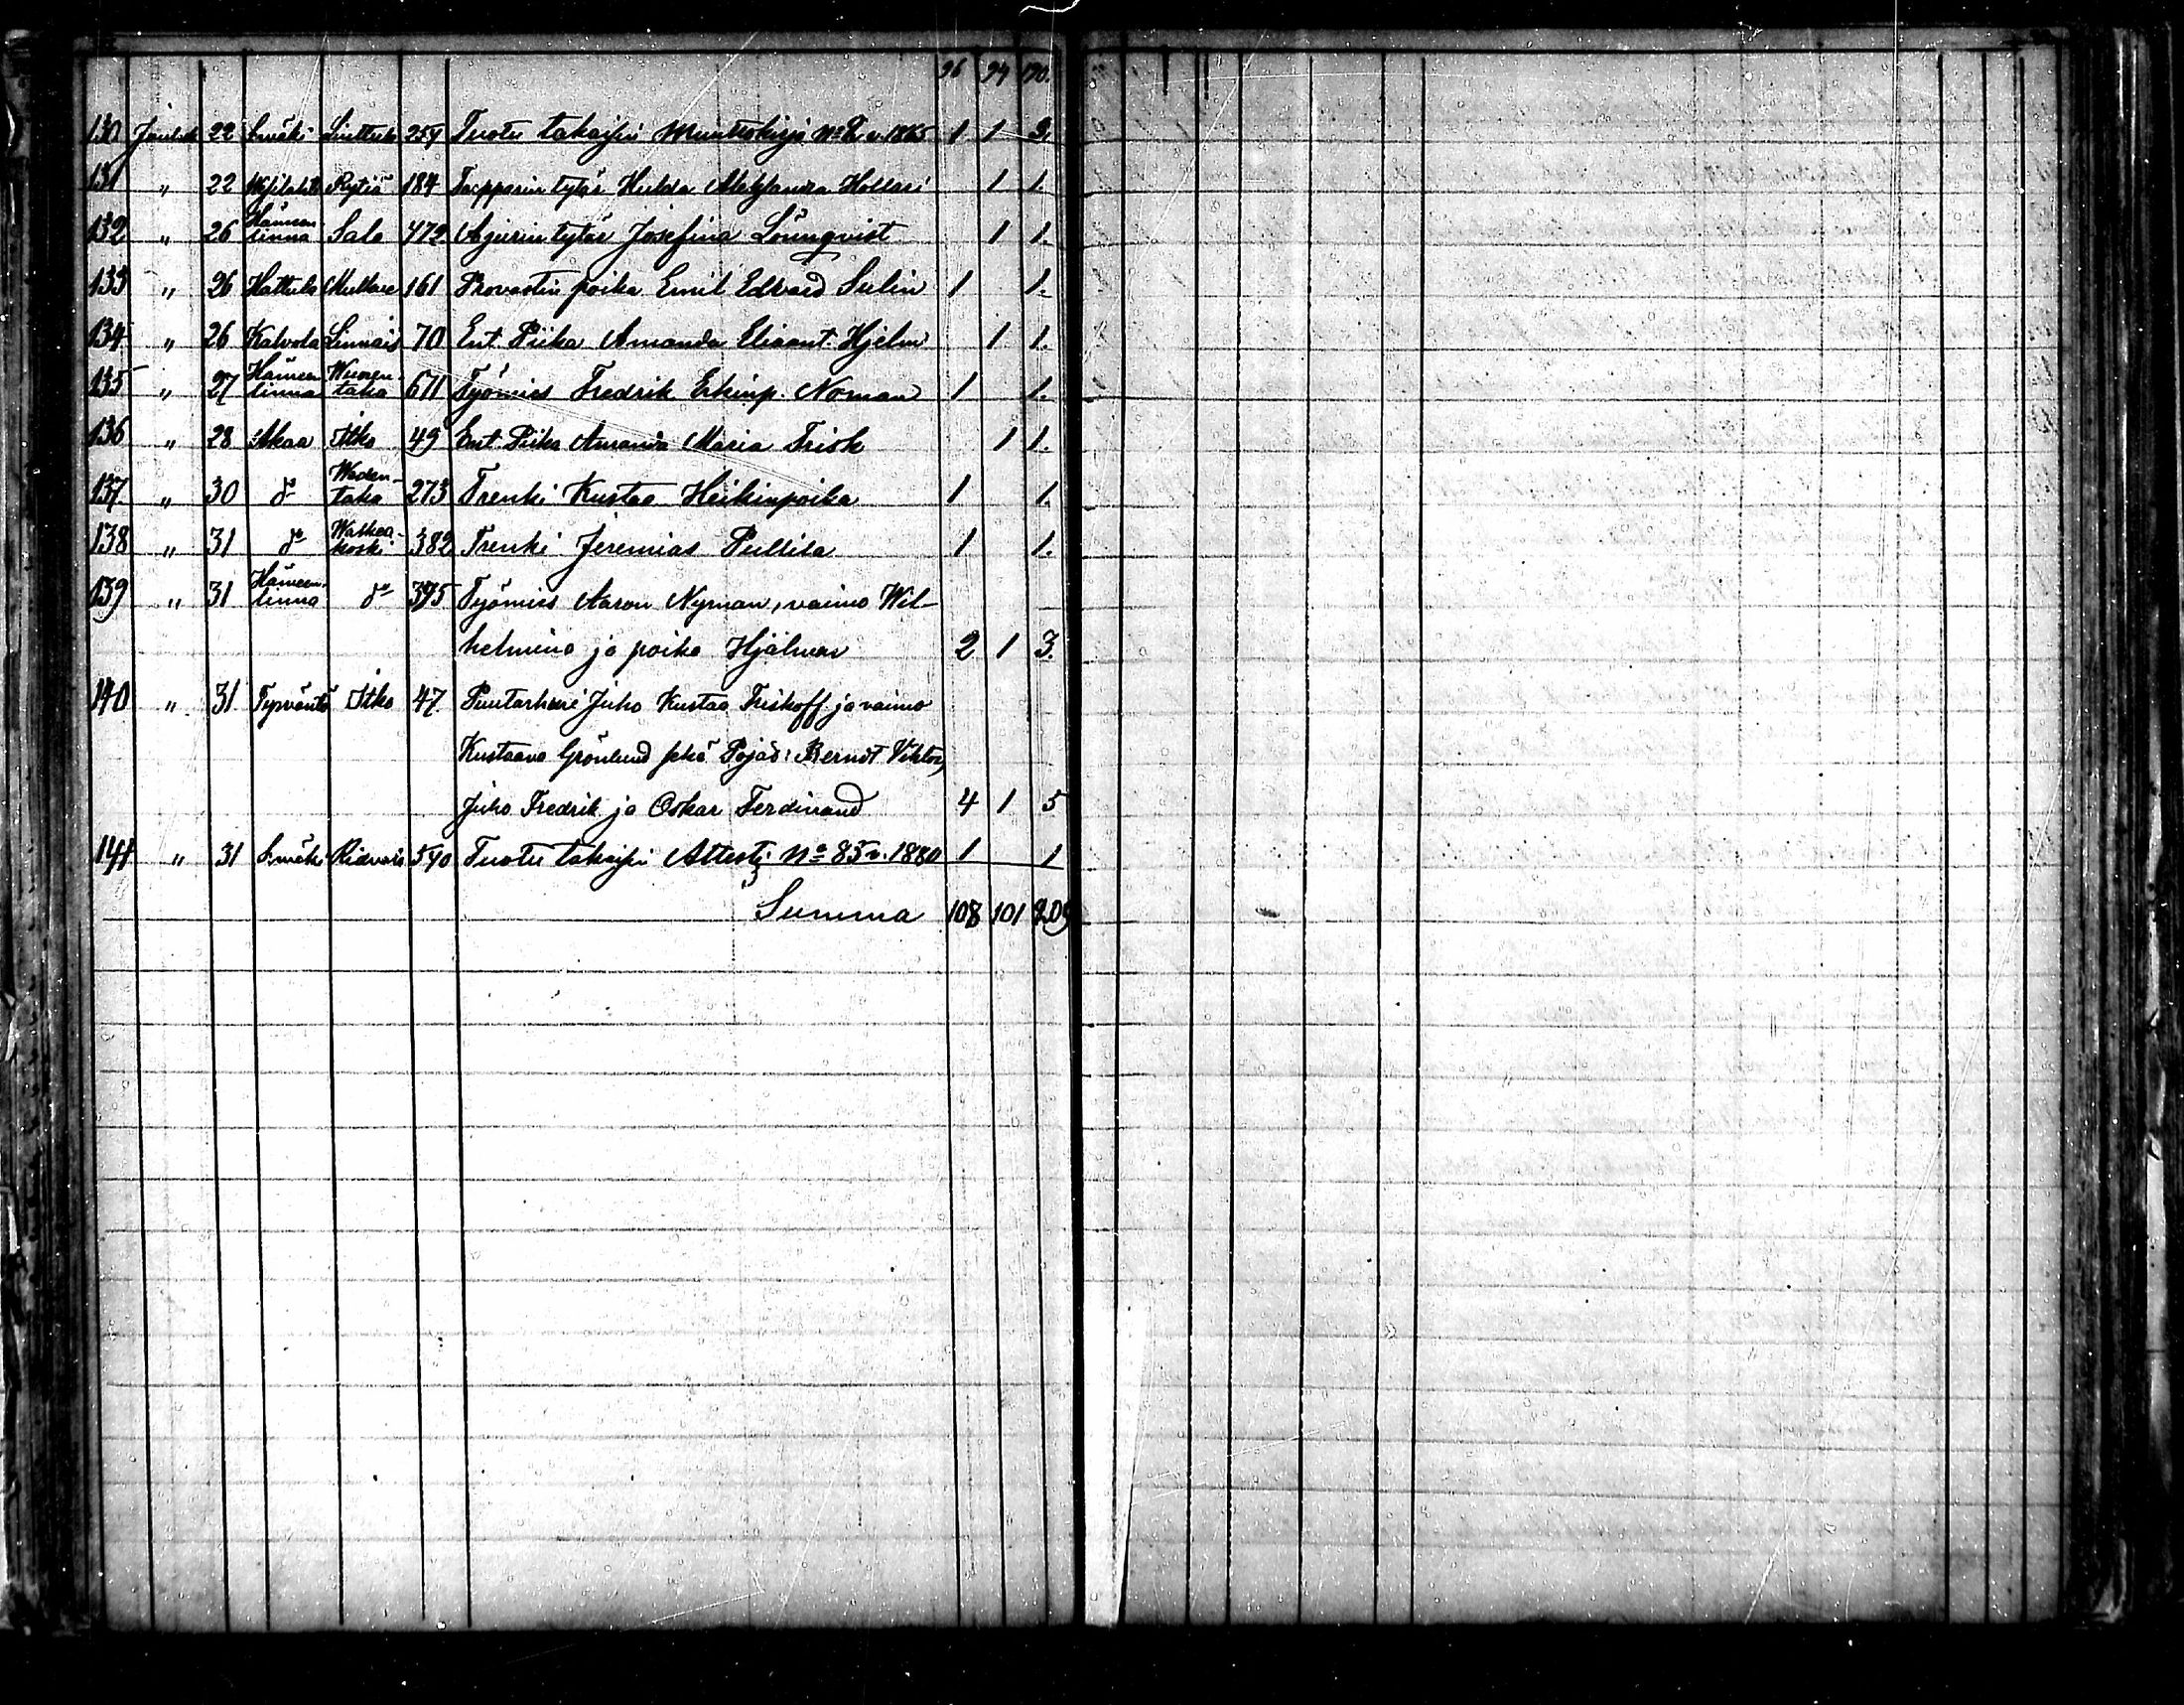 96 94 190.
130 Jouluk 22 S:mäki Sinttula 257 Tuotu takaisin Muuttokirja No 2 v. 1865 1 1 2.
131 " 22 Wesilahti Rytiö 184 tytär Hulda Hollari 1 1.
132 " 26 Hämeenlinna Salo 472 Ajurin tytär Josefina Lönnqvist 1 1.
133 " 26 Hattula 161 Provastin poika Emil Edvard Sulin 1 1.
134 " 26 Kalvola Linnais 70 Ent. Piika Amanda Eliaant. Hjelm 1 1.
135 " 27 Hämeenlinna Wuorentaka 671 Työmies Fredrik Erkinp. Noman 1 1.
136 " 28 Akaa Itko 49 Ent. Piika Amanda Maria Frisk 1 1.
137 " 30 do Wedentaka 273 Trenki Kustaa Heikinpoika 1 1.
138 " 31 do Walkeakoski 382 Trenki Jeremias Pullila 1 1.
139 " 31 Hämeenlinna do 395 Työmies Aaron Nyman, vaimo Wil-
helmina ja poika Hjälmar 2 1 3.
140 " 31 Tyrväntö Itko 47 Puutarhuri Juho Kustaa Friskoff ja vaimo
Kustaava Grönlund sekä Pojad: Berndt Viktor,
Juho Fredrik ja Oskar Ferdinand 4 1 5
141 " 31 S:mäki Ridvala 540 Tuotu takaisin Attesti No 85 v. 1880 1 1
Summa 108 101 209